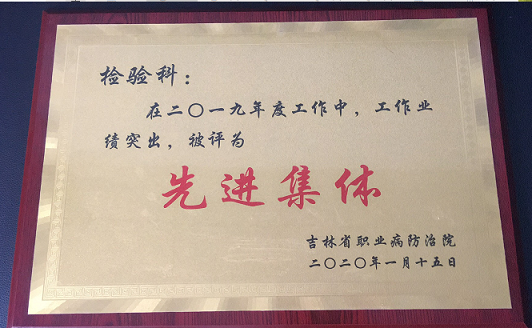 检验科：
在二〇一九年度工作中，工作业
绩突出，被评为
先进集体
吉林省职业病防治院
二〇二〇年一月十五日